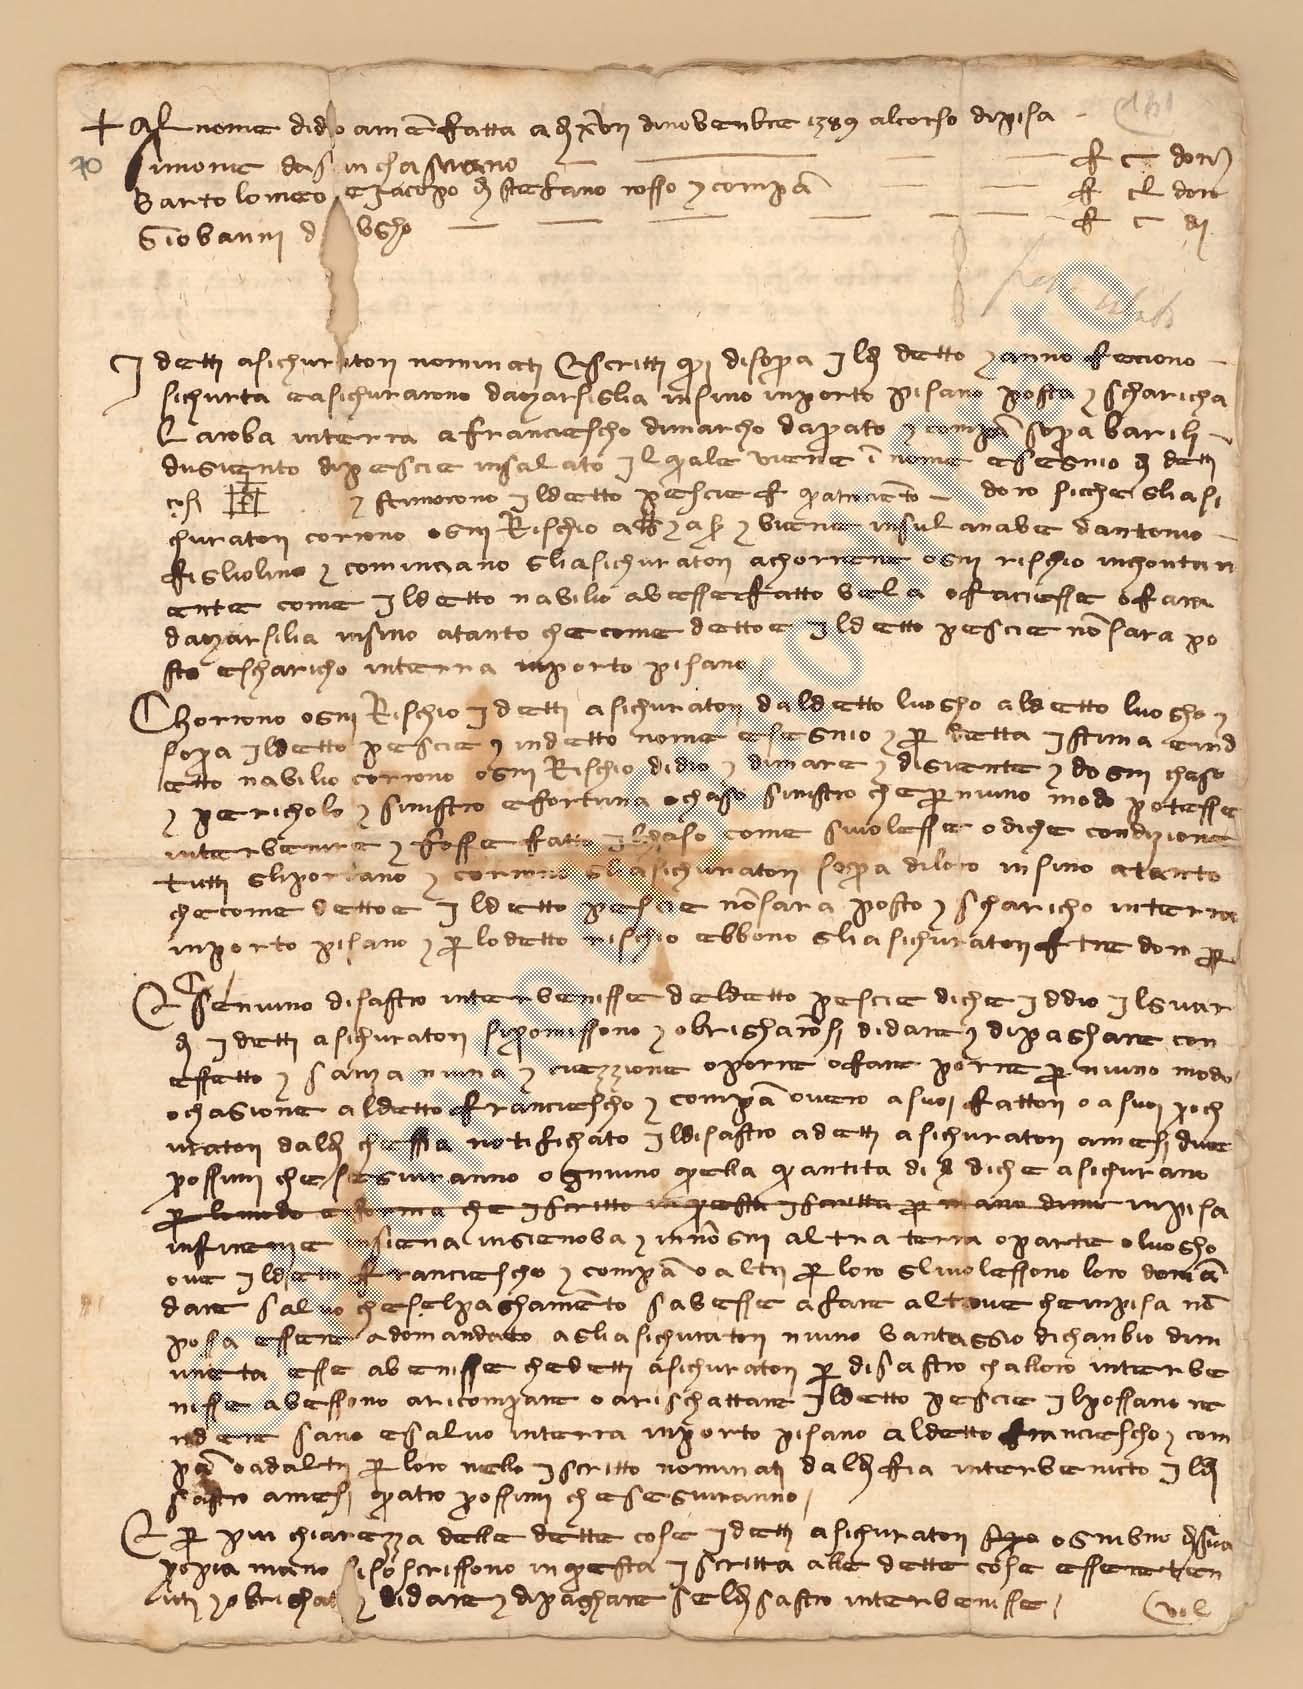 + Al nome didio amē fatta adj xvii dinovenbre 1389 alcorso dipisa
Simone da san chasciano f c doro
Bartolomeo e Jacopo dj stefano rosso z compā f cl doro
Giovanni f c di
I detti asichuratori nominati e scritti qui disopra il dj detto z anno feciono
sichurta e asichurarono damarsiglia insino inporto pisano posta z scharicha
la roba interra a franciescho dimarcho daprato z compā sopra barili
dugiento dipescie insalato il quale viene ī nome e segnio dj detti
cosi z stimorono ildetto pescie f quatrociēto doro sicche gliasi
churatori corono ogni Rischio z viene insul anave dantonio
figliolino z cominciano gliasichuratori achorrere ogni rischio inchontan
ente come ildetto navilio avesse fatto vela o faciesse o fara
damarsilia insino atanto che come dettoe ildetto pescie nōsara po
sto escharicho interra inporto pisano
Chorrono ogni Rischio i detti asichuratori daldetto luogho aldetto luogho z
sopra ildetto pescie z indetto nome e segnio z per detta istima e ind
etto navilio corrono ogni Rischio didio z dimare z digiente z dogni chaso
z pericholo z sinistro e fortuna o chaso sinistro che per niuno modo potesse
intervenire z fosse fatto ilchaso come sivolesse o diche condizione
tutti gliportano z corrono gliasichuratori sopra diloro insino atanto
checome dettoe ildetto pescie nōsara posto z scharicho interra
inporto pisano z per lodetto rischio ebbono gliasichuratori f tre doro per c
E seniuno disastro intervenisse deldetto pescie diche iddio ilguar
dj i detti asichuratori sipromissono z obrigharōsi didare z dipaghare con
effetto z sanza niuna z ciezzione oporre o fare porre per niuno modo
ochasione aldetto franciescho z compā overo a suoi fattori o a suoi proch
uratori daldj chessia notifichato ildisastro adetti asichuratori amesi due
prossimi che seguiranno ogniuno quella quantita di diche asichurano
per lomodo e forma che iscritto in questa iscritta per mano dimī inpisa
infirenze insiena ingienova z innōgni altra terra oparte o luogho
ove ildetto franciescho z compā o altri per loro glivolessono loro domā
dare salvo cheselpaghamēto savesse afare altrove che inpisa nō
possa essere adomandato agliasichuratori niuno vantaggio dichanbio dim
oneta esse avenisse chedetti asichuratori per disastro challoro interve
nisse avessono aricomprare o arischattare ildetto pescie ilpossano re
ndere sano e salvo interra inporto pisano aldetto franciescho z com
pā o adaltri per loro nello iscritto nominati daldj fia intervenuto ildj
sastro amesi quatro prossimi cheseguiranno
E per piu chiarezza delle dette cose i detti asichuratori ogniuno dj sua
propia mano sisoscrissono inquesta iscritta alle dette cose essere ten
uti z obrichati z didare z dipaghare seldj sastro intervenisse